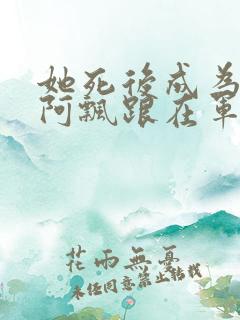 她死後成為
阿飄跟在軍
花雨無憂
未经同意禁止转载